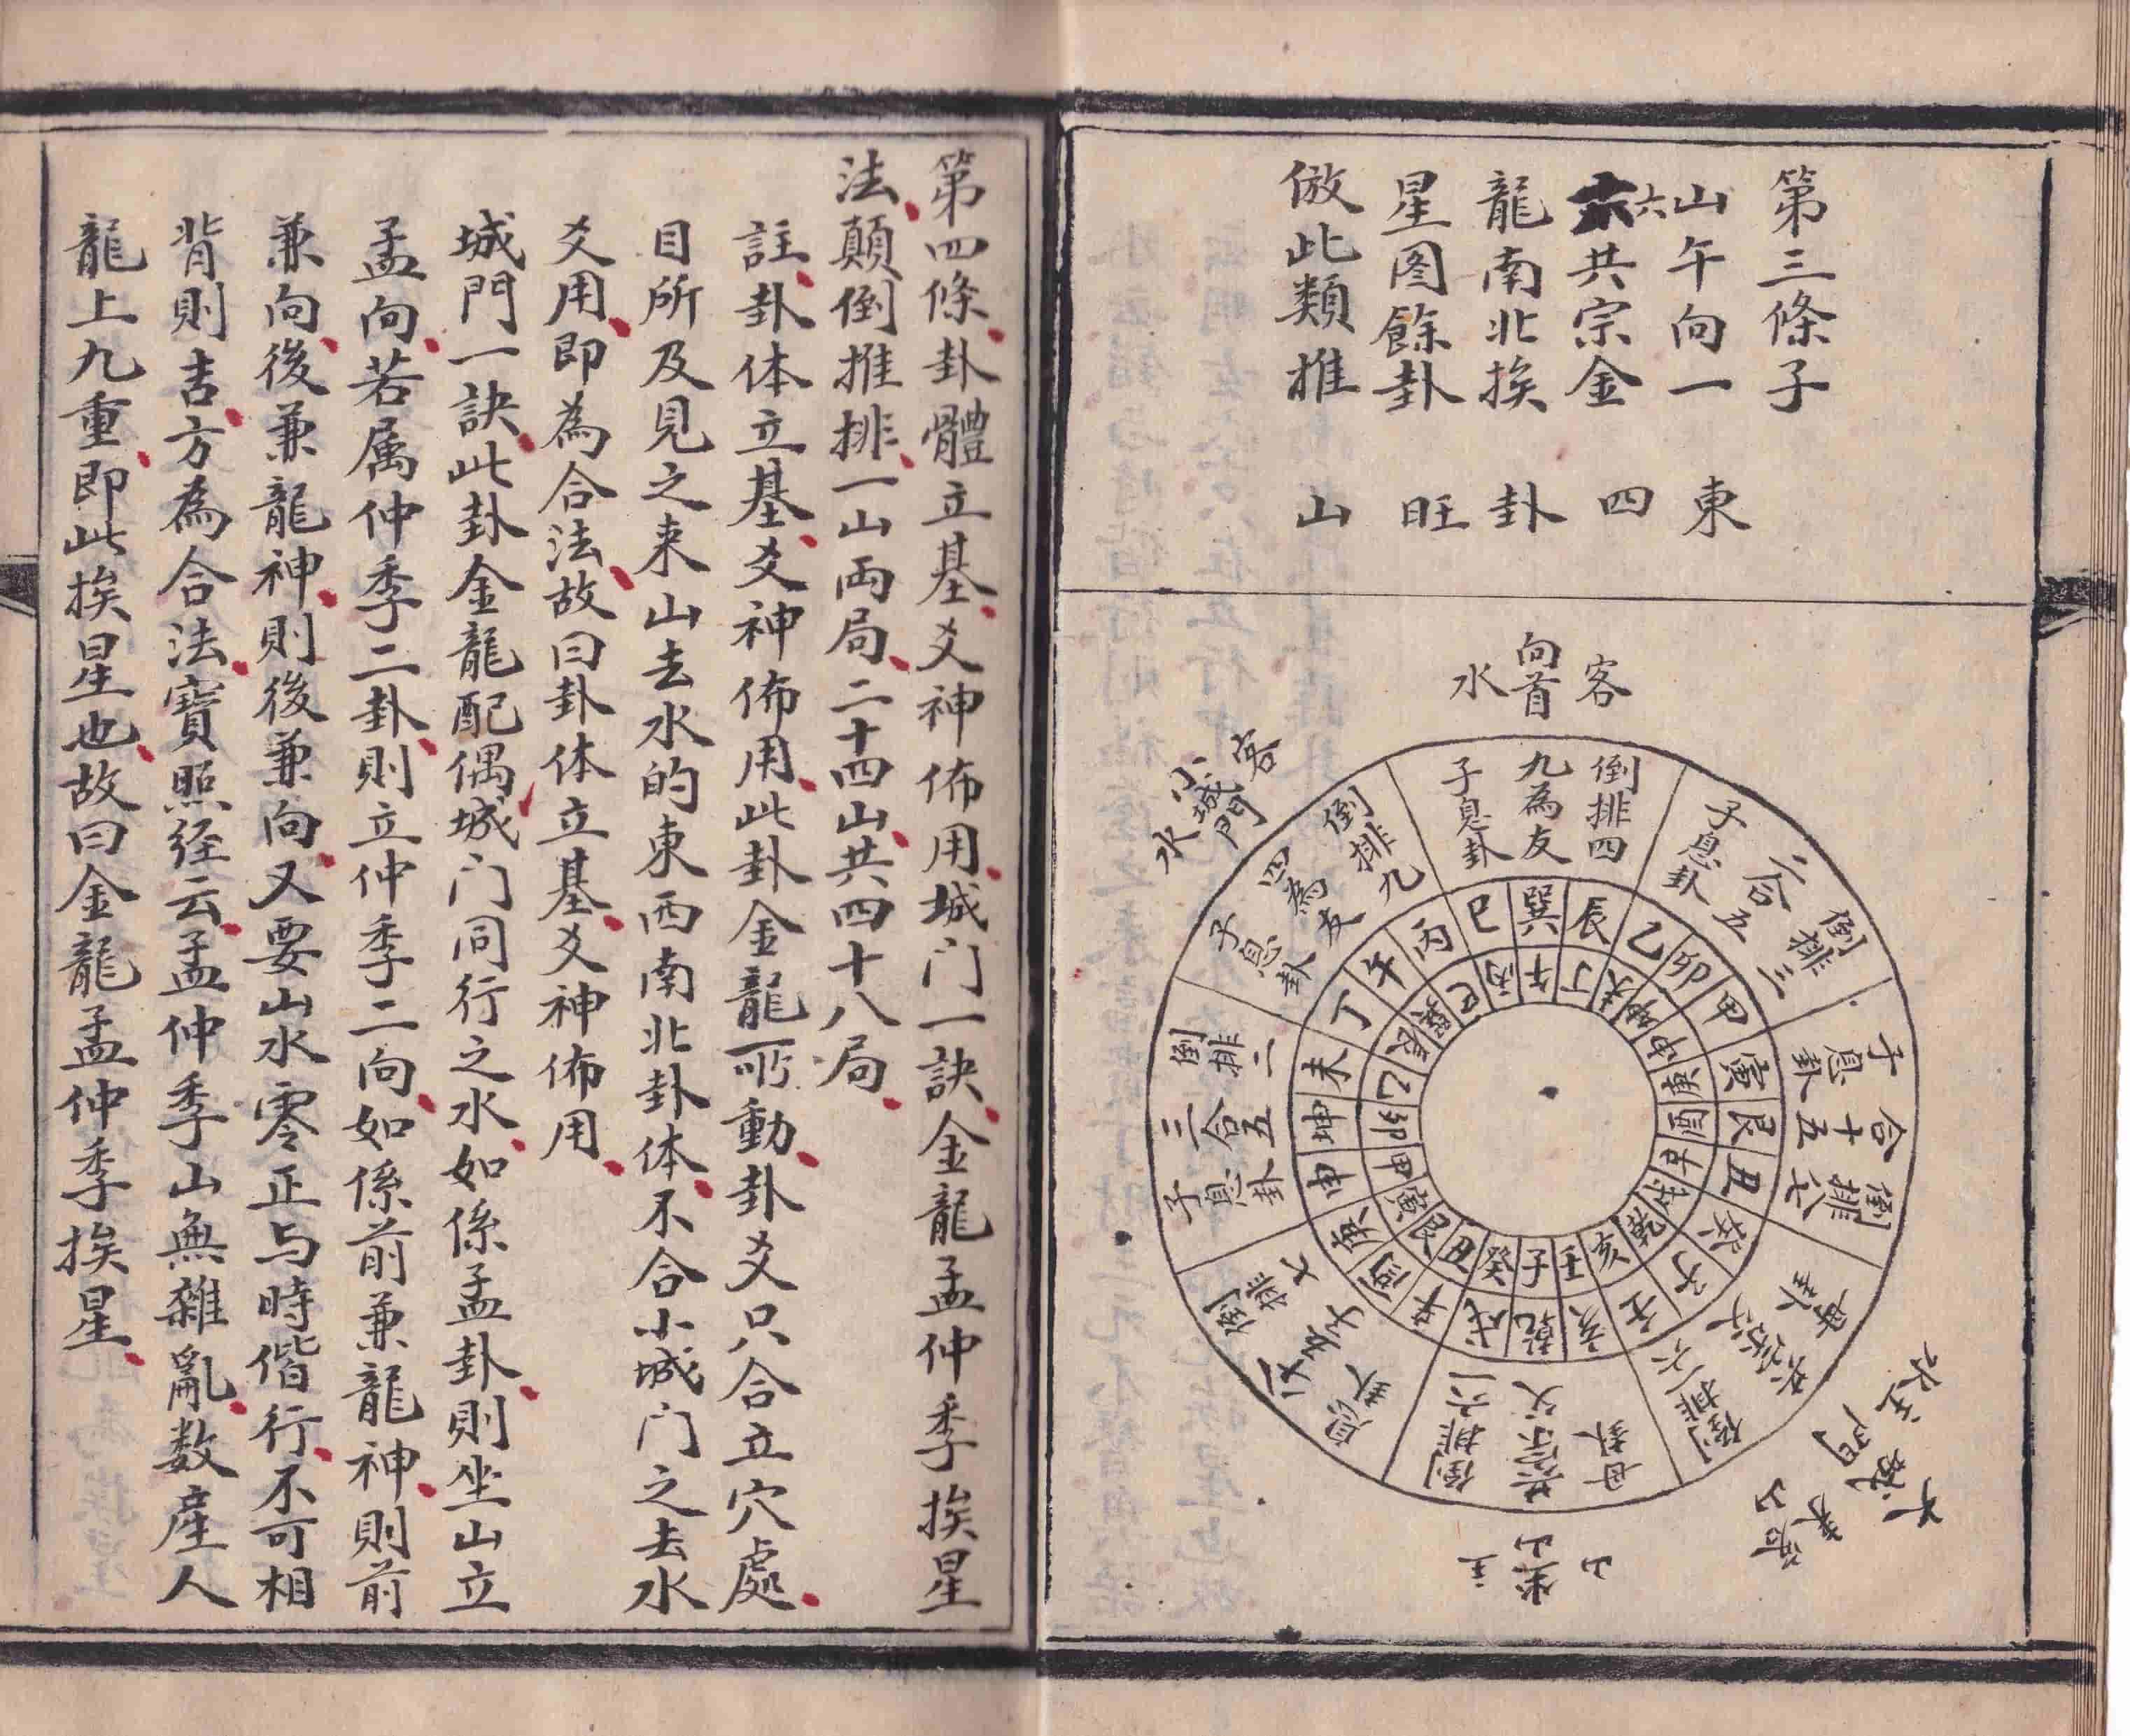 第三條子
山午向一
六共宗金
龍南北挨
星图餘卦
倣此類推
東
四
卦
旺
山
客
向首
水
客
小城門
水
倒排四
九為友
子息卦
倒排九
四為友
子息卦
倒排二
三合五
子息卦
倒排七
倒排六一
共宗父
母卦
倒排三
二合五
子息卦
子息卦
合十五
倒排
辰
巽
巳
丙
午
丁
未
坤
申
庚
酉
辛
戌
乾
亥
壬
子
癸
丑
艮
寅
甲
卯
乙
丁
午
丙
巳
巽
辰
乙
卯
甲
寅
艮
丑
癸
子
壬
亥
乾
戌
辛
酉
庚
申
坤
未
山
坐山
主
第四條卦體立基爻神佈用城门一訣金龍孟仲季挨星
法顛倒推排一山両局二十四山共四十八局
註卦体立基爻神佈用此卦金龍一所動卦爻只合立穴處
目所及見之来山去水的東西南北卦体不合小城门之去水
爻用即為合法故曰卦体立基爻神佈用
城門一訣此卦金龍配偶城门同行之水如係孟卦則坐山立
孟向若属仲季二卦則立仲季二向如係前兼龍神則前
兼向後兼龍神則後兼向又要山水零正与時偕行不可相
背則吉方為合法寶照经云孟仲季山無雜亂数產人
龍上九重即此挨星也故曰金龍孟仲季挨星